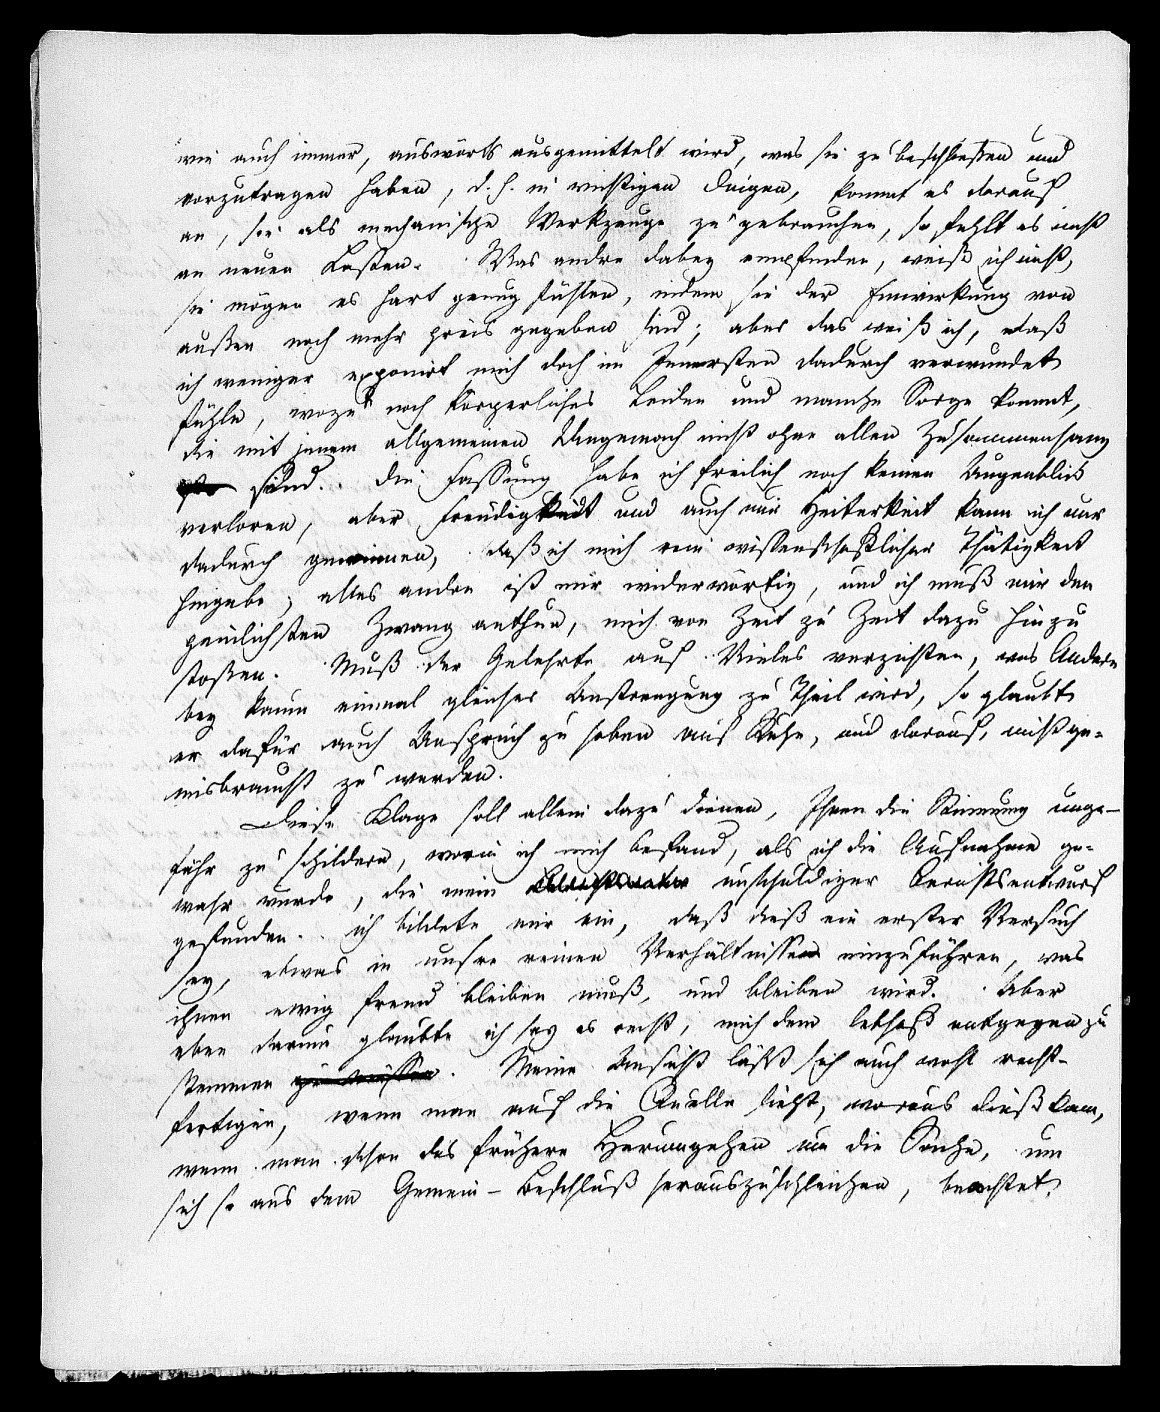 wie auch immer, auswärts ausgemittelt wird, was sie zu beschließen und
vorzutragen haben, d. h. in wichtigen Dingen, kommt es darauf
an, sie als mechanische Werkzeuge zu gebrauchen, so fehlt es nicht
an neuen Lasten. Was andre dabey empfinden, weiß ich nicht,
sie mögen es hart genug fühlen, indem sie der Einwirkung von
außen noch mehr preis gegeben sind; aber das weiß ich, daß
ich weniger exponirt mich doch im Innersten dadurch verwundet
fühle, wozu noch körperliches Leiden und manche Sorge kommt,
die mit jenem allgemeinen Ungemach nicht ohne allen Zusammenhang
sind. Die Fassung habe ich freilich noch keinen Augenblick
verloren, aber Freudigkeit und auch nur Heiterkeit kann ich nur
dadurch gewinnen, daß ich mich rein wissenschaftlicher Thätigkeit
hingebe; alles andre ist mir widerwärtig, und ich muß mir den
peinlichsten Zwang anthun, mich von Zeit zu Zeit dazu hinzu
stoßen. Muß der Gelehrte auf Vieles verzichten, was Andern
bey kaum einmal gleicher Anstrengung zu Theil wird, so glaubt
er dafür auch Anspruch zu haben auf Ruhe, und darauf, nicht ge-
misbraucht zu werden.
Diese Klage soll allein dazu dienen, Ihnen die Stimmung unge-
fähr zu schildern, worin ich mich befand, als ich die Aufnahme ge-
wahr wurde, die mein unschuldiger Berichtsentwurf
gefunden. ich bildete mir ein, daß dieß ein erster Versuch
sey, etwas in unsre reinen Verhältnisse einzuführen, was
ihnen ewig fremd bleiben muß, und bleiben wird. Aber
eben darum glaubte ich sey es recht, mich dem lebhaft entgegen zu
stemmen zu müssen. Meine Ansicht läßt sich auch wohl recht-
fertigen, wenn man auf die Quelle sieht, woraus dieß kam,
wenn man schon das frühere Herumgehen um die Sache, um
sich so aus dem Gemein-Beschluß herauszuschleichen, beachtet.